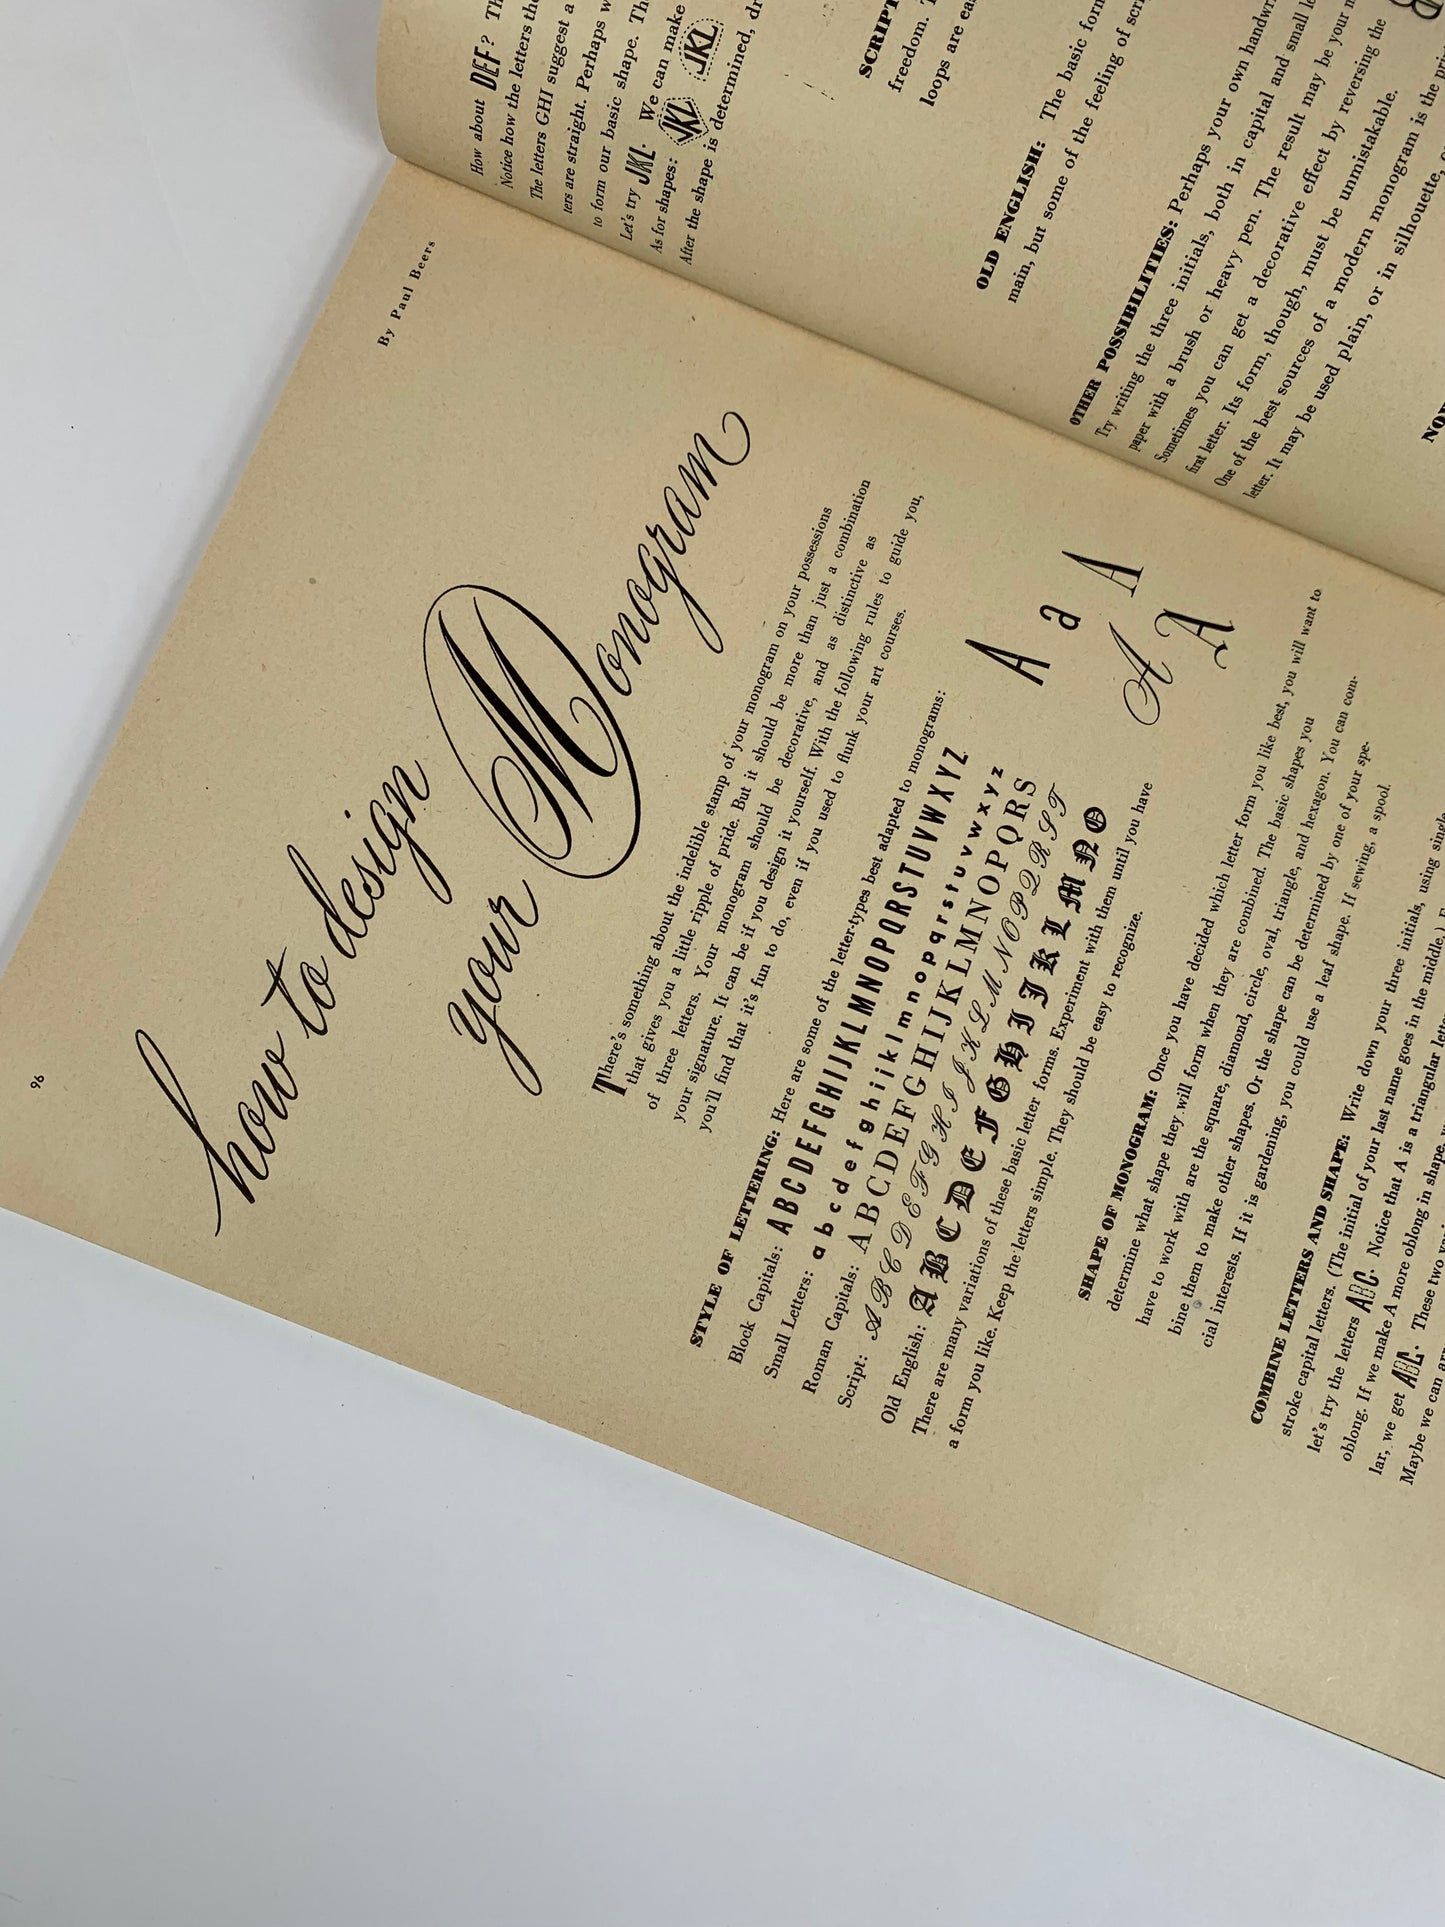 96
how to design
your Monogram
By Paul Beers
There's something about the indelible stamp of your monogram on your possessions
that gives you a little ripple of pride. But it should be more than just a combination
of three letters. Your monogram should be decorative, and as distinctive as
your signature. It can be if you design it yourself. With the following rules to guide you,
you'll find that it's fun to do, even if you used to flunk your art courses.
STYLE OF LETTERING: Here are some of the letter-types best adapted to monograms:
Block Capitals: ABCDEFGHIJKLMNOPQRSTUVWXYZ
Small Letters: abcdefghijklmnopqrstuvwxyz
Roman Capitals: ABCDEFGHIJKLMNOPQRS
Script: ABCDEFGHIJKLMNOPQRST
Old English: ABCDEFGHIJKLMNO
A a A
A A
There are many variations of these basic letter forms. Experiment with them until you have
a form you like. Keep the letters simple. They should be easy to recognize.
SHAPE OF MONOGRAM: Once you have decided which letter form you like best, you will want to
determine what shape they will form when they are combined. The basic shapes you
have to work with are the square, diamond, circle, oval, triangle, and hexagon. You can com-
bine them to make other shapes. Or the shape can be determined by one of your spe-
cial interests. If it is gardening, you could use a leaf shape. If sewing, a spool.
COMBINE LETTERS AND SHAPE: Write down your three initials, using single
stroke capital letters. (The initial of your last name goes in the middle.)
let's try the letters ABC. Notice that A is a triangular
oblong. If we make A more oblong in shape,
lar, we get ABC. These two
Maybe we can
How about DEF?
Notice how the letters
The letters GHI suggest a
ters are straight. Perhaps
to form our basic shape.
Let's try JKL. We can make
As for shapes: JKL JKL
After the shape is determined,
SCRIPT
freedom.
loops are
OLD ENGLISH: The basic
main, but some of the feeling of
OTHER POSSIBILITIES: Perhaps your own
Try writing the three initials, both in capital and small
paper with a brush or heavy pen. The result may be your
Sometimes you can get a decorative effect by reversing the
first letter. Its form, though, must be unmistakable.
One of the best sources of a modern monogram is the
letter. It may be used plain, or in silhouette,